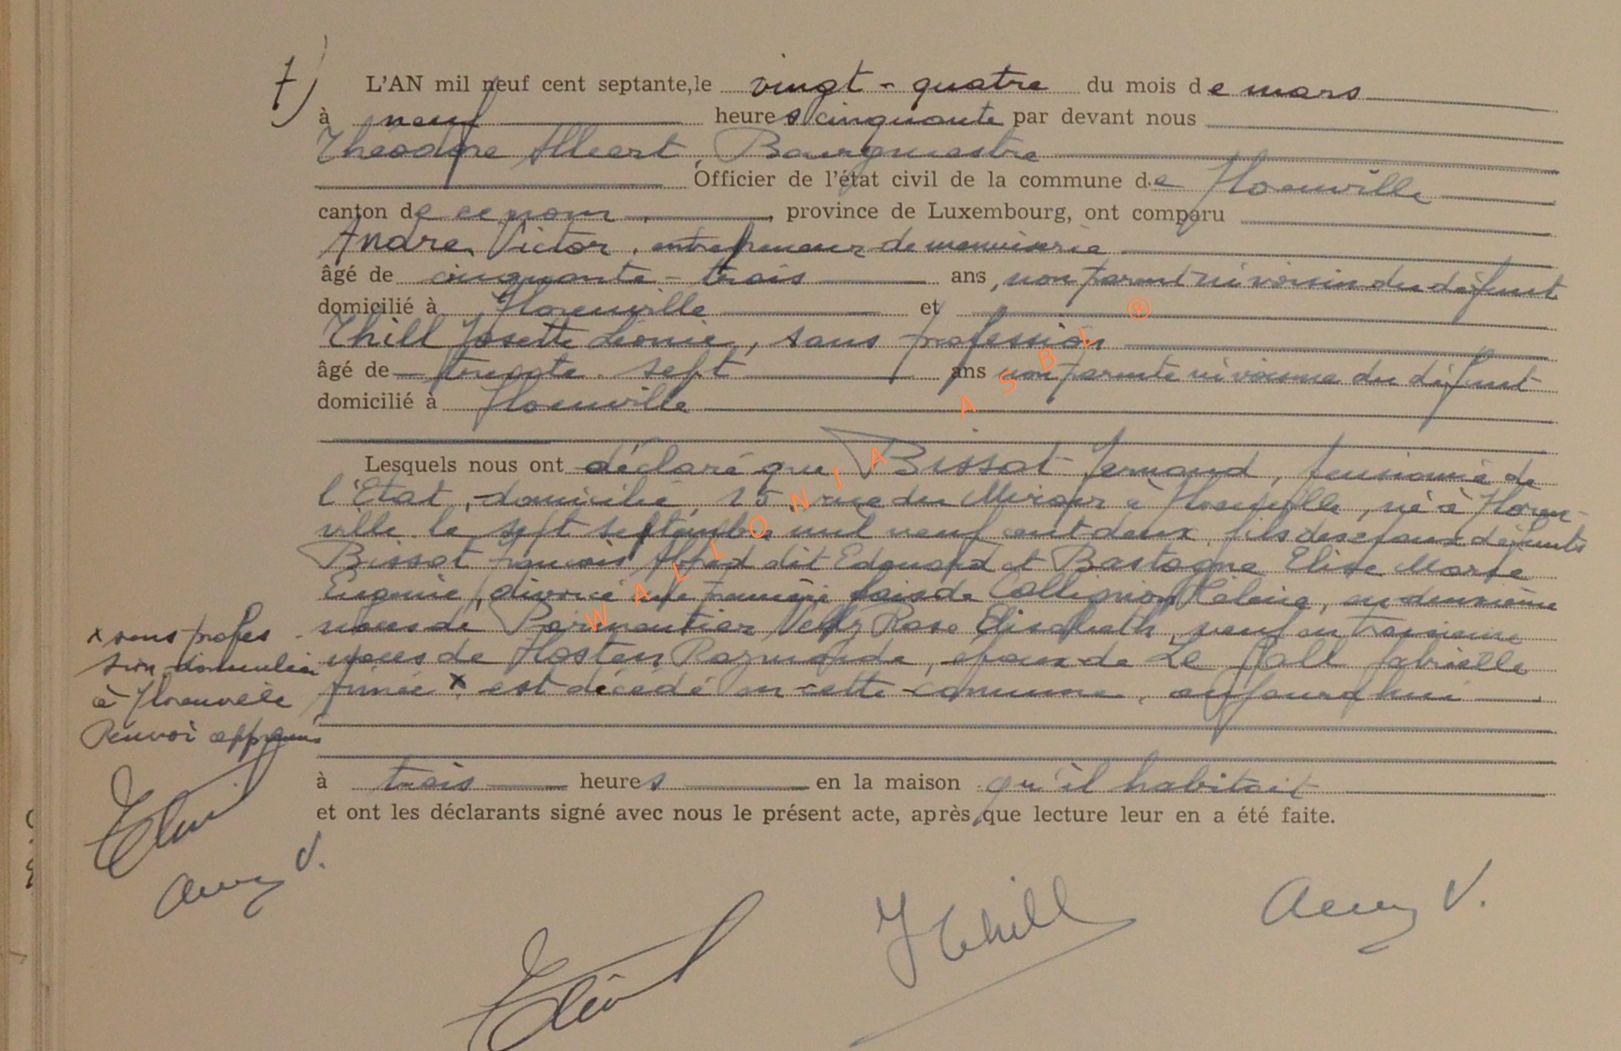 7)
L'AN mil neuf cent septante, le vingt-quatre du mois de mars
à neuf heures cinquante par devant nous
Théodore Albert, Bourgmestre
Officier de l'état civil de la commune de Florenville
canton de ce nom, province de Luxembourg, ont comparu
Victor, entrepreneur de menuiserie
âgé de cinquante-trois ans, non parent ni voisin du défunt
domicilié à Florenville et
Thill Josette Léonie, sans profession
âgé de trente-sept ans non parente ni voisine du défunt
domicilié à Florenville
Lesquels nous ont déclaré que Bissot Fernand, pensionné de
l'Etat, domicilié, 15, rue du Miroir à Florenville, né à Floren-
ville le sept septembre mil neuf cent deux, fils des époux défunts
Bissot François Alfred dit Edouard et Bastogne Elise Marie
Eugénie, divorcé de première fois de Collignon Hélène, en deuxième
noces de Parmentier Nelly Rose Elisabeth, veuf en troisième
noces de Hosten Raymonde, époux de Le Gall Gabrielle
x est décédé en cette commune, aujourd'hui
x sans profes-
sion, domiciliée
à Florenville
Renvoi approuvé
à trois heures en la maison qu'il habitait
et ont les déclarants signé avec nous le présent acte, après que lecture leur en a été faite.
V.
J Thill
V.
WALLONIA ASBL ®